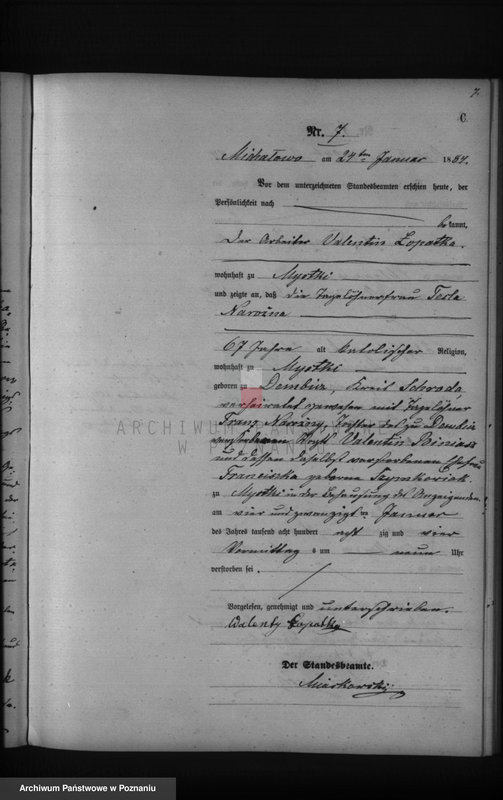 7.
C.
Nr. 7.
Michałowo am 24ten Januar 1884.
Vor dem unterzeichneten Standesbeamten erschien heute, der
Persönlichkeit nach
be kannt,
Der Arbeiter Valentin Łopatka.
wohnhaft zu Mystki
und zeigte an, daß die Tagelöhnerfrau Tecla
Narożna
67 Jahre alt katolischer Religion,
wohnhaft zu Mystki
geboren zu Dembicz, Kreis Schroda
verheirathet gewesen mit Tagelöhner
Franz Narożny, Tochter des zu
verstorbenen Valentin
und dessen daselbst verstorbenen Ehefrau
Franciszka geborene
zu Mystki in der Behausung des Anzeigenden
am vier und zwanzigsten Januar
des Jahres tausend acht hundert acht zig und vier
Vormittag s um neun Uhr
verstorben sei.
Vorgelesen, genehmigt und unterschrieben.
Walenty Łopatka
Der Standesbeamte.
ARCHIWUM PAŃSTWOWE
W POZNANIU
Archiwum Państwowe w Poznaniu